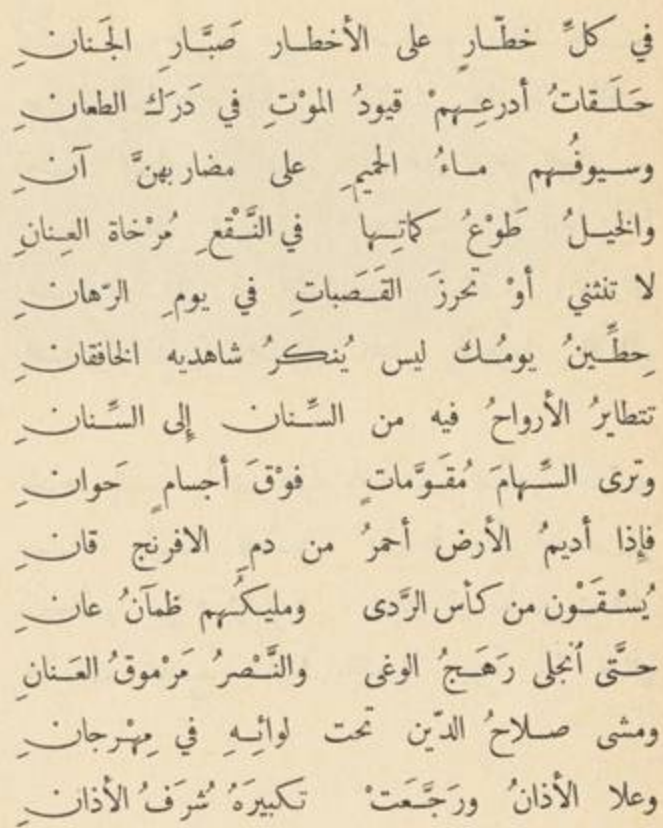 في كلِّ خطّارٍ على الأخطار صَبَّارِ الجَنانِ
حَلَقاتُ أدرعِهمْ قيودُ الموْتِ في دَرَكِ الطعانِ
وسيوفُهم ماءُ الحميمِ على مضاربهنَّ آنِ
والخيلُ طَوْعُ كماتِها في النَّقْعِ مُرْخاة العِنانِ
لا تنثني أوْ تحرزَ القَصَباتِ في يومِ الرّهانِ
حِطِّينُ يومُك ليس يُنكرُ شاهديه الخافقانِ
تتطايرُ الأرواحُ فيه من السِّنانِ إِلى السِّنانِ
وترى السِّهامَ مُقَوَّماتٍ فوْقَ أجسامٍ حَوانِ
فإِذا أديمُ الأرض أحمرُ من دمِ الافرنج قانِ
يُسْقَوْن من كأس الرَّدى ومليكُهم ظمآنُ عانِ
حتَّى ٱنجلى رَهَجُ الوغى والنَّصْرُ مَرْموقُ العَنانِ
ومشى صلاحُ الدّين تحت لوائِهِ في مِهْرجانِ
وعلا الأذانُ ورَجَّعَتْ تكبيرَهُ شُرَفُ الأذانِ